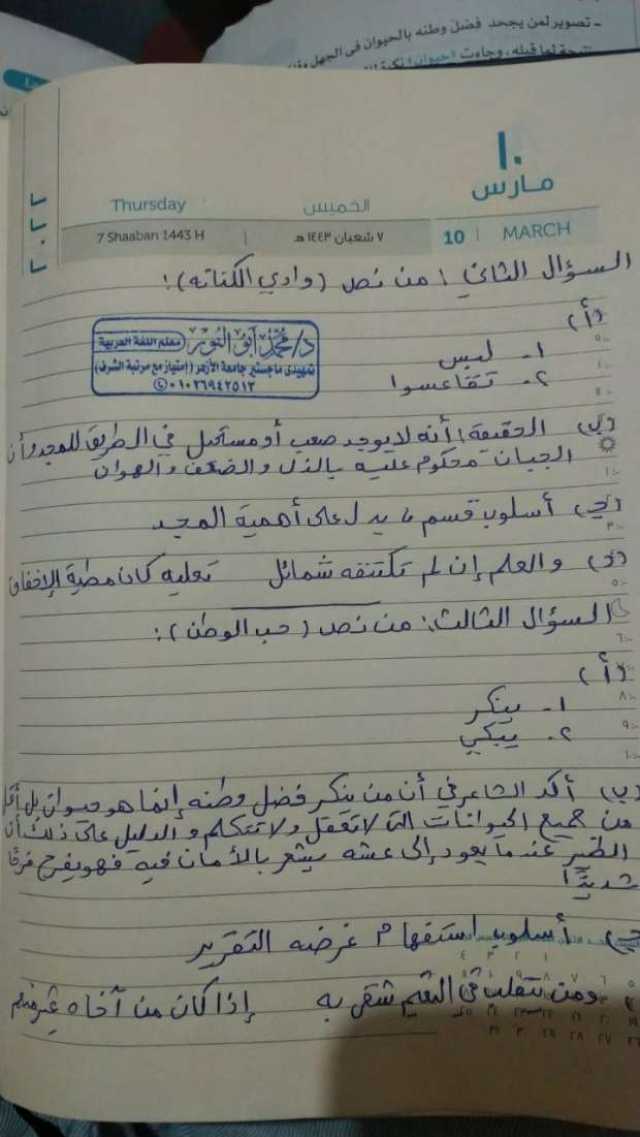 - تصوير لمن يجحد فضل وطنه بالحيوان في الجهل
لما قبله، وجاءت «حيوان» نكرة
١٠
مارس
Thursday الخميس
7 Shaaban 1443 H | ٧ شعبان ١٤٤٣ هـ 10 | MARCH
السؤال الثاني: من نص (وادي الكنانة):
(أ)
١- لبس
٢- تقاعسوا
د/محمد أبو النور معلم اللغة العربية
تمهيدي ماجستير جامعة الأزهر (امتياز مع مرتبة الشرف)
٠١٠٢٦٩٤٢٥١٢
(ب) الحقيقة: أنه لا يوجد صعب أو مستحيل في الطريق للمجد وأن
الجبان محكوم عليه بالذل والضعف والهوان
(ج) أسلوب قسم يدل على أهمية المجد
(د) والعلم إن لم تكتنفه شمائل تعليه كان مطية الإخفاق
السؤال الثالث: من نص (حب الوطن):
(أ)
١- ينكر
٢- يبكي
(ب) أكد الشاعر في أن من ينكر فضل وطنه إنما هو حيوان بل أقل
من جميع الحيوانات التي لا تعقل ولا تتكلم والدليل على ذلك أن
الطير عندما يعود إلى عشه يشعر بالأمان فيه فهو يفرح فرحًا
شديدًا
(ج) أسلوب استفهام غرضه التقرير
ومن يتقلب في النعيم شقى به إذا كان من آخاه غير منعم